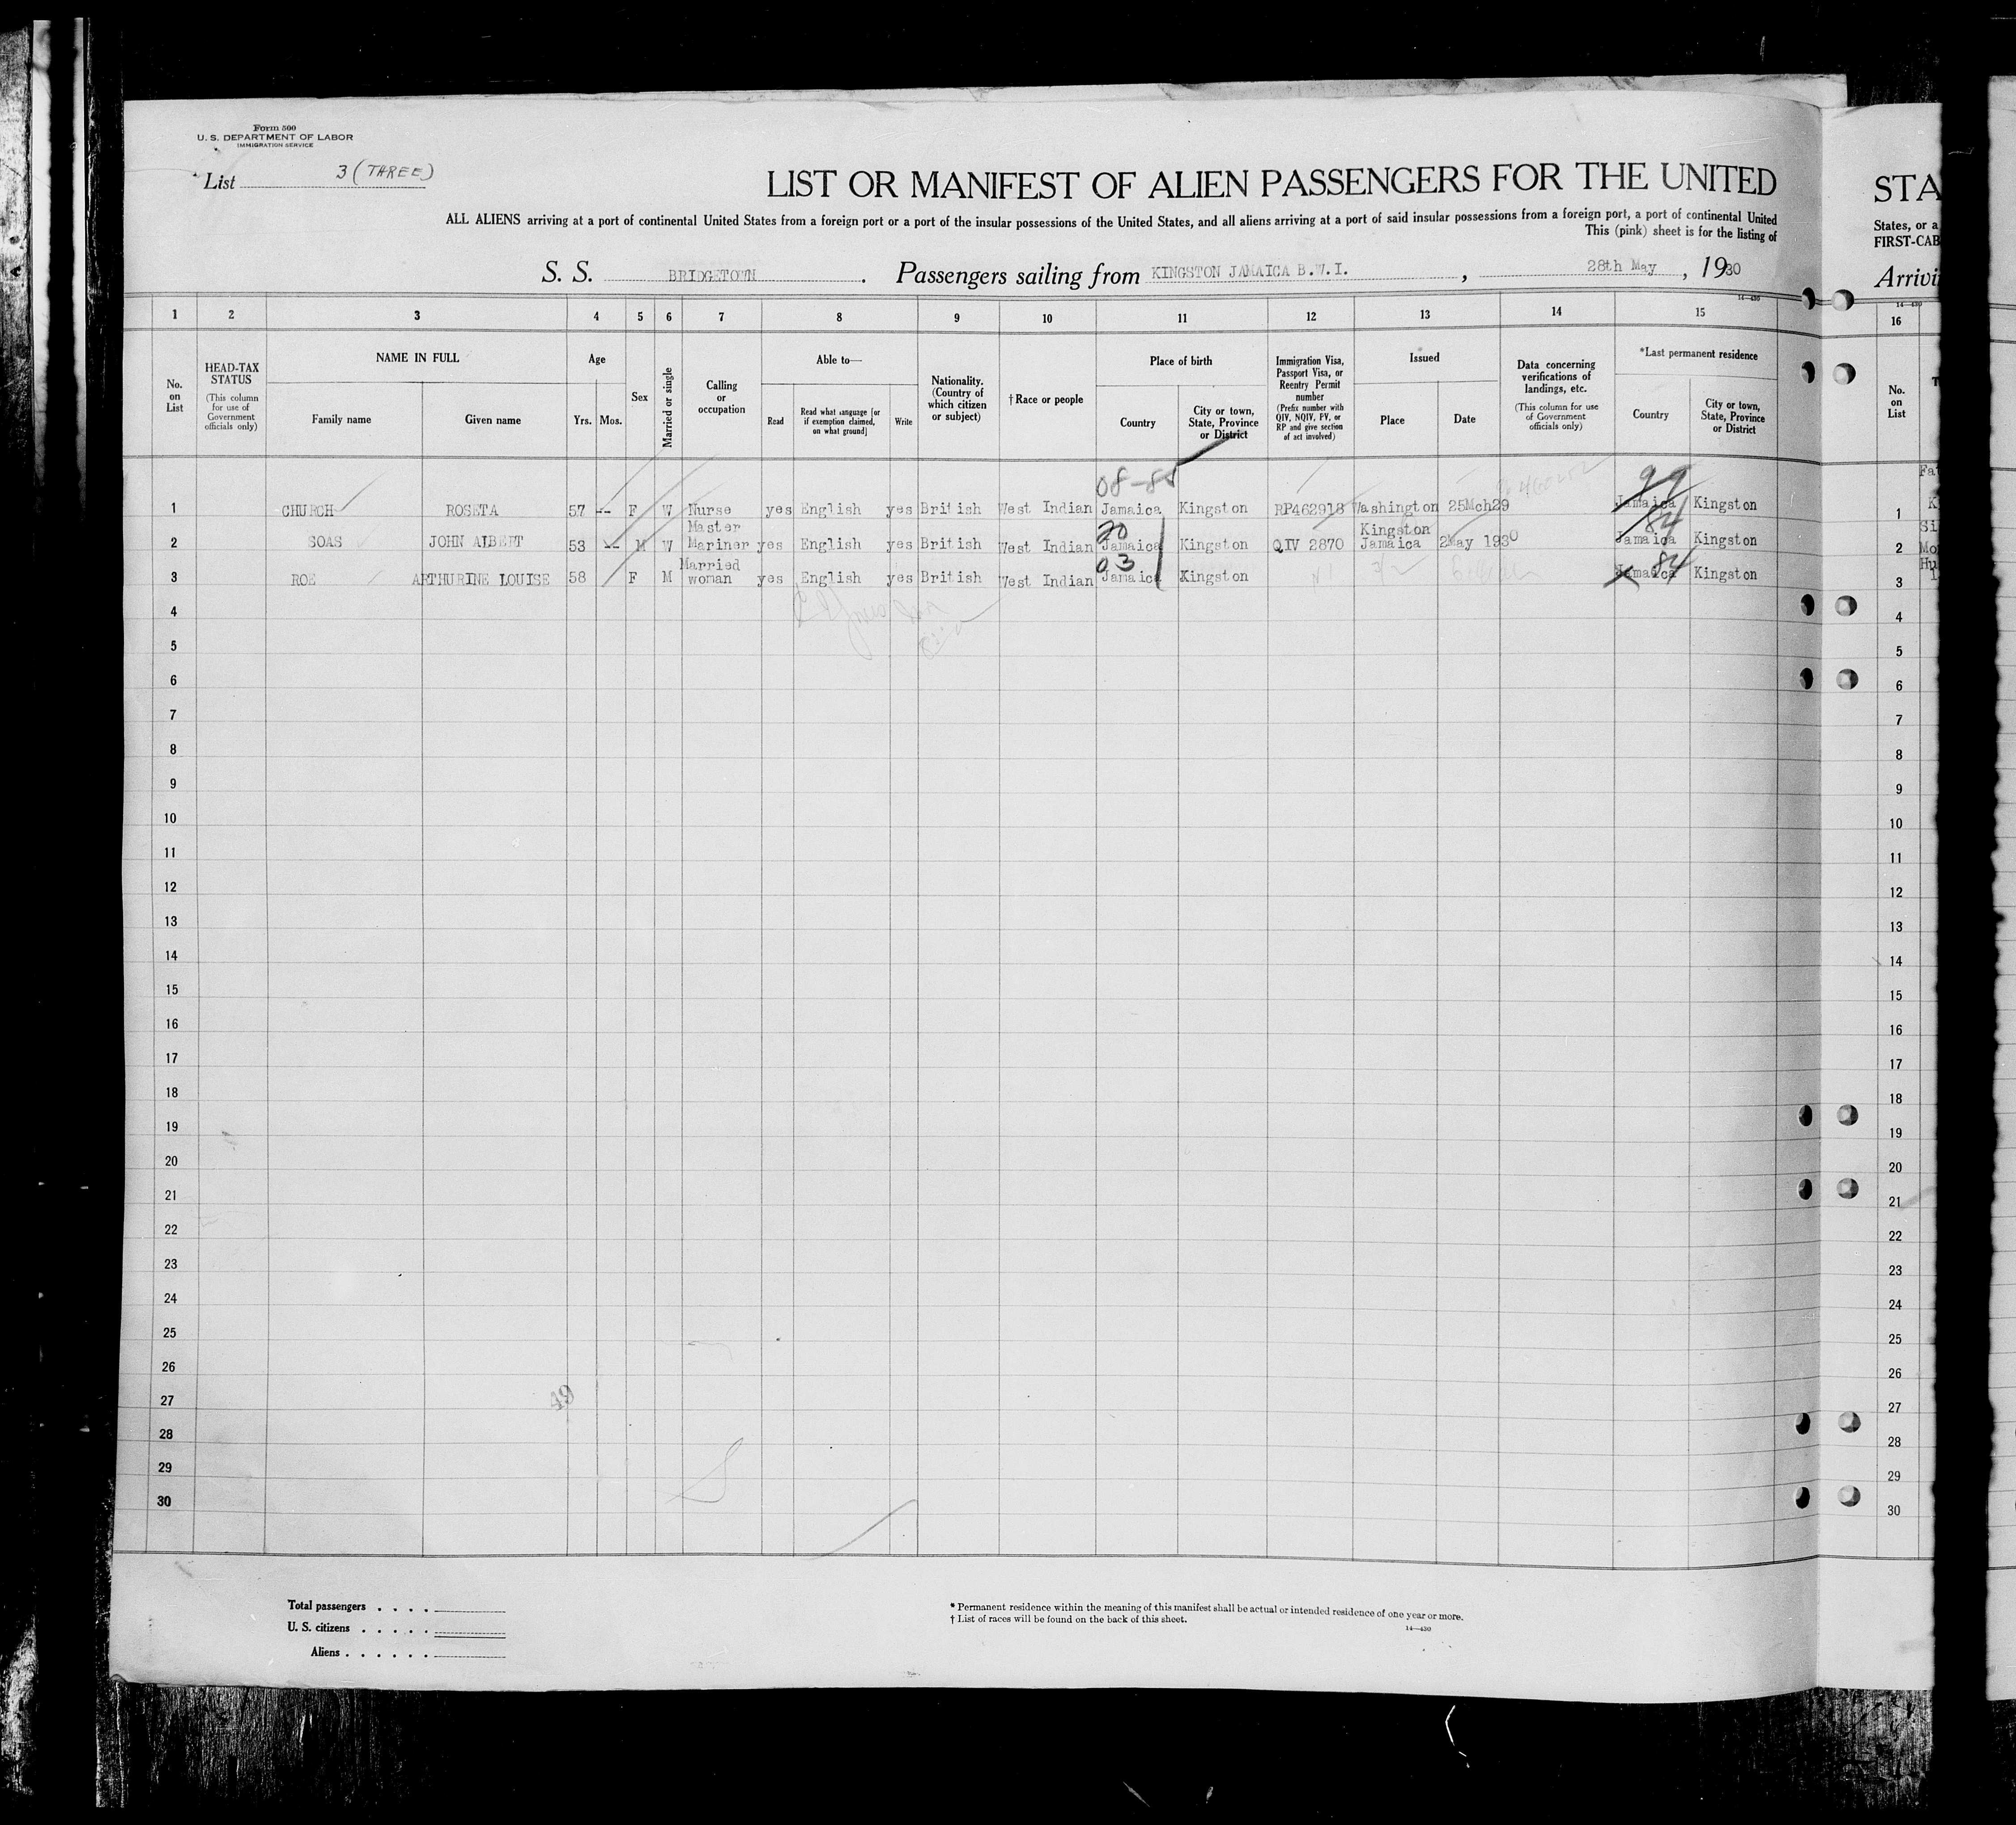 Form 500
U. S. DEPARTMENT OF LABOR
IMMIGRATION SERVICE
List 3 (THREE)
LIST OR MANIFEST OF ALIEN PASSENGERS FOR THE UNITED
STA
ALL ALIENS arriving at a port of continental United States from a foreign port or a port of the insular possessions of the United States, and all aliens arriving at a port of said insular possessions from a foreign port, a port of continental United
States, or a
This (pink) sheet is for the listing of
FIRST-CAB
S. S. BRIDGETOWN . Passengers sailing from KINGSTON JAMAICA B.W.I. , 28th May , 1930
Arrivi
14—430
1 2 3 4 5 6 7 8 9 10 11 12 13 14 15
16
No. on List
HEAD-TAX STATUS (This column for use of Government officials only)
NAME IN FULL
Family name Given name
Age
Yrs. Mos.
Sex
Married or single
Calling or occupation
Able to—
Read Read what language [or if exemption claimed, on what ground] Write
Nationality. (Country of which citizen or subject)
† Race or people
Place of birth
Country City or town, State, Province or District
Immigration Visa, Passport Visa, or Reentry Permit number (Prefix number with QIV, NQIV, PV, or RP and give section of act involved)
Issued
Place Date
Data concerning verifications of landings, etc. (This column for use of Government officials only)
*Last permanent residence
Country City or town, State, Province or District
No. on List
08-85
1 CHURCH ROSETA 57 -- F W Nurse yes English yes British West Indian Jamaica Kingston RP462918 Washington 25Mch29 Jamaica Kingston 1
20 84
2 SOAS JOHN ALBERT 53 -- M W Master Mariner yes English yes British West Indian Jamaica Kingston QIV 2870 Kingston Jamaica 2May 1930 Jamaica Kingston 2
03 84
3 ROE ARTHURINE LOUISE 58 F M Married woman yes English yes British West Indian Jamaica Kingston Jamaica Kingston 3
4 4
5 5
6 6
7 7
8 8
9 9
10 10
11 11
12 12
13 13
14 14
15 15
16 16
17 17
18 18
19 19
20 20
21 21
22 22
23 23
24 24
25 25
26 26
27 49 27
28 28
29 29
30 30
Total passengers . . . .
U. S. citizens . . . . .
Aliens . . . . . .
* Permanent residence within the meaning of this manifest shall be actual or intended residence of one year or more.
† List of races will be found on the back of this sheet.
14—430